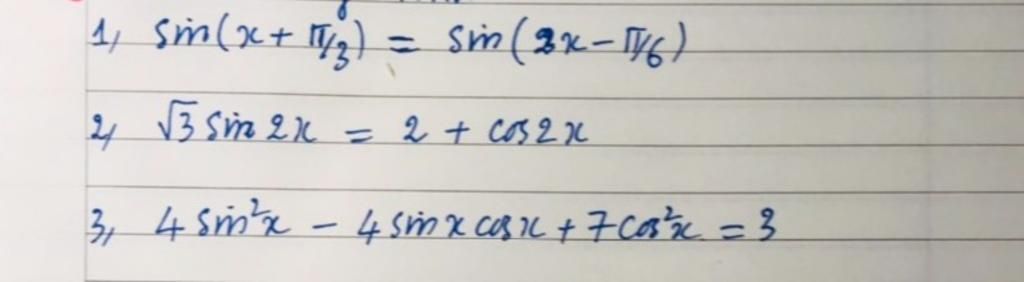 1, sin(x + π/3) = sin(3x - π/6)
2, √3 sin 2x = 2 + cos 2x
3, 4 sin²x - 4 sin x cos x + 7 cos²x = 3